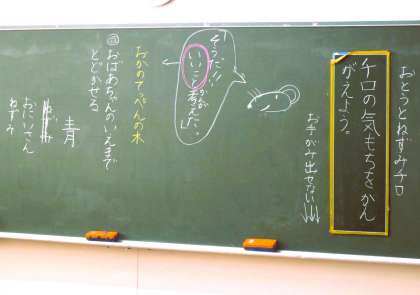 おとうとねずみチロ
チロの気もちをかん
がえよう。
お手がみ出せない
そうだ!!
いいこと
考えた。」
おかのてっぺんの木
おばあちゃんのいえまで
とどかせる
青
おにいさん
ねずみ